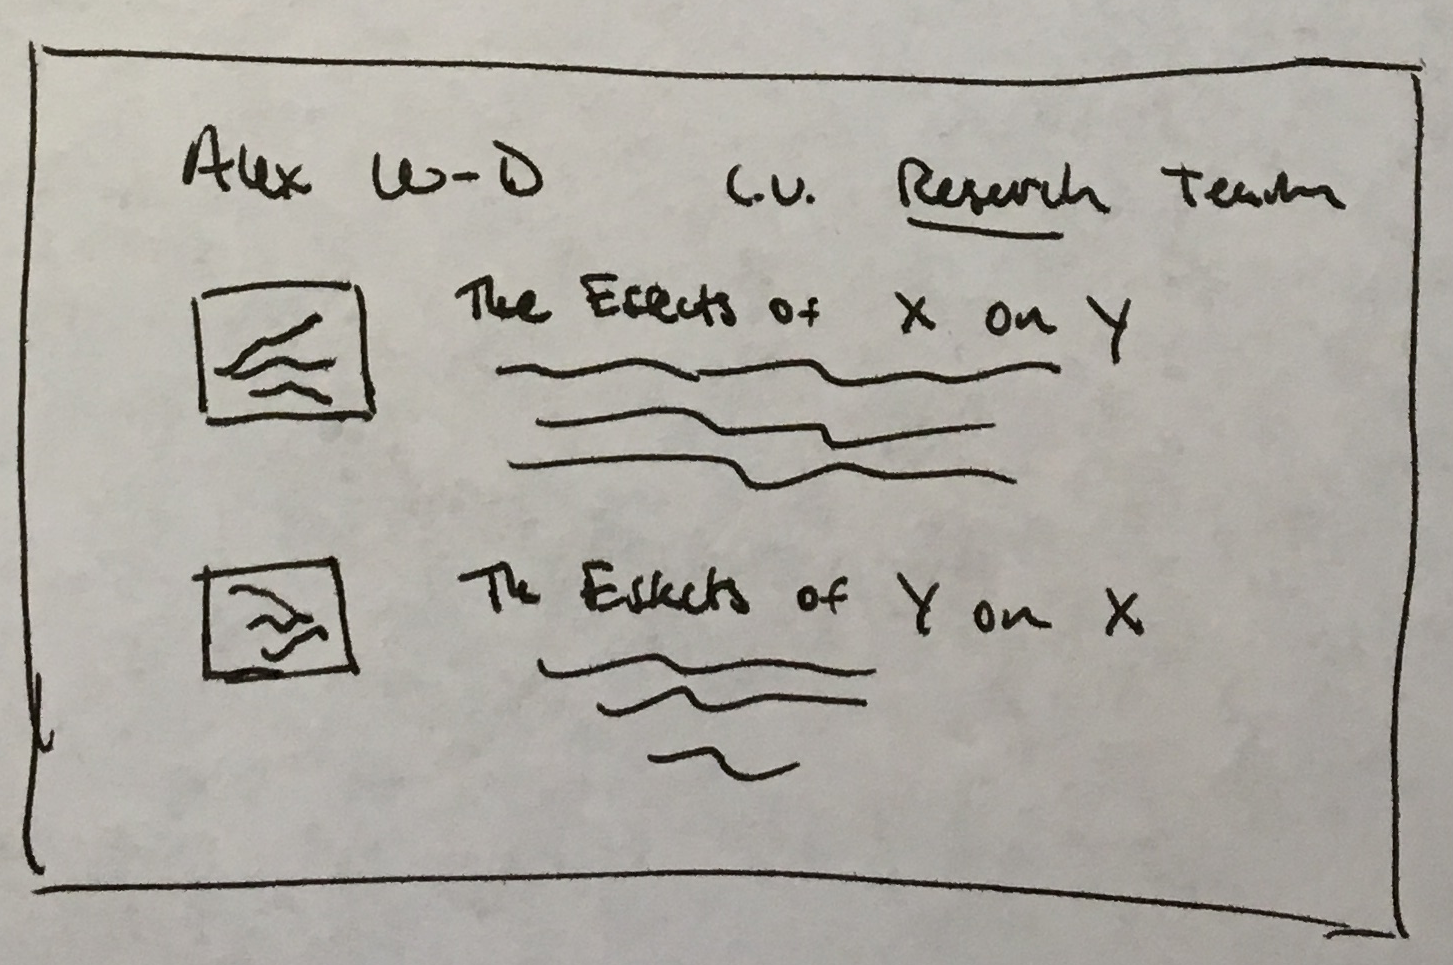 Alex W-D C.V. Research
The Effects of X on Y
The Effects of Y on X